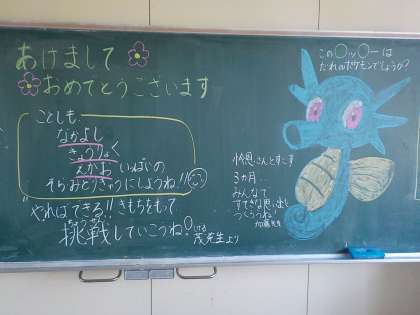 あけまして
おめでとうございます
ことしも、
なかよし
きょうりょく
えがお いっぱいの
そらみどりきゅうにしようね!!
やればできる!! きもちをもって
挑戦していこうね!
ちょうせん
より
この〇ッ〇ーは
だれのポケモンでしょうか?
さんとすごす
3ヵ月。
みんなで
すてきな思い出
つくろうね!
加藤